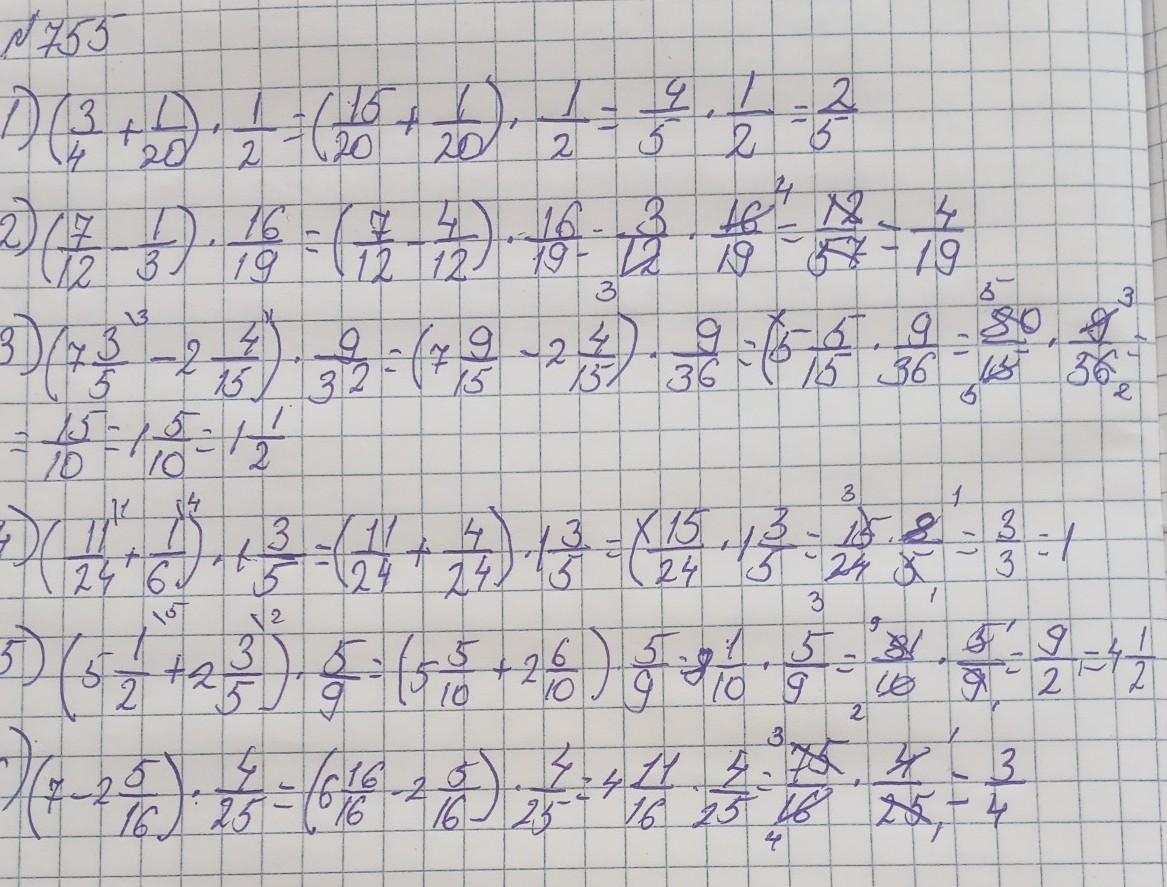 № 755
1) (3/4 + 1/20) · 1/2 = (15/20 + 1/20) · 1/2 = 4/5 · 1/2 = 2/5
2) (7/12 - 1/3) · 16/19 = (7/12 - 4/12) · 16/19 = 3/12 · 16/19 = 12/57 = 4/19
3) (7 3/5 - 2 4/15) · 9/32 = (7 9/15 - 2 4/15) · 9/36 = (5 5/15 · 9/36 = 80/15 · 9/36 =
= 15/10 = 1 5/10 = 1 1/2
4) (11/24 + 1/6) · 1 3/5 = (11/24 + 4/24) · 1 3/5 = (15/24 · 1 3/5 = 15/24 · 8/5 = 3/3 = 1
5) (5 1/2 + 2 3/5) · 5/9 = (5 5/10 + 2 6/10) · 5/9 = 8 1/10 · 5/9 = 81/10 · 5/9 = 9/2 = 4 1/2
) (7 - 2 5/16) · 4/25 = (6 16/16 - 2 5/16) · 4/25 = 4 11/16 · 4/25 = 75/16 · 4/25 = 3/4